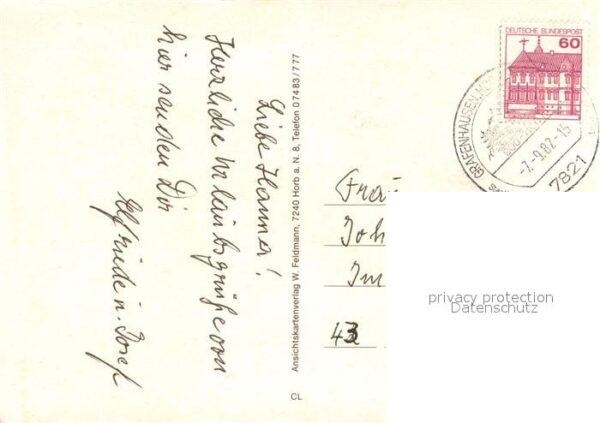 Liebe Hanner!
Herzliche Urlaubsgrüße von
hier senden Dir
Elfriede u. Josef
Ansichtskartenverlag W. Feldmann, 7240 Horb a. N. 8, Telefon 07483/777
CL
DEUTSCHE BUNDESPOST
60
GRAFENHAUSEN
-7.-9.82-15
7821
Frau
Joh
Im
43
privacy protection
Datenschutz